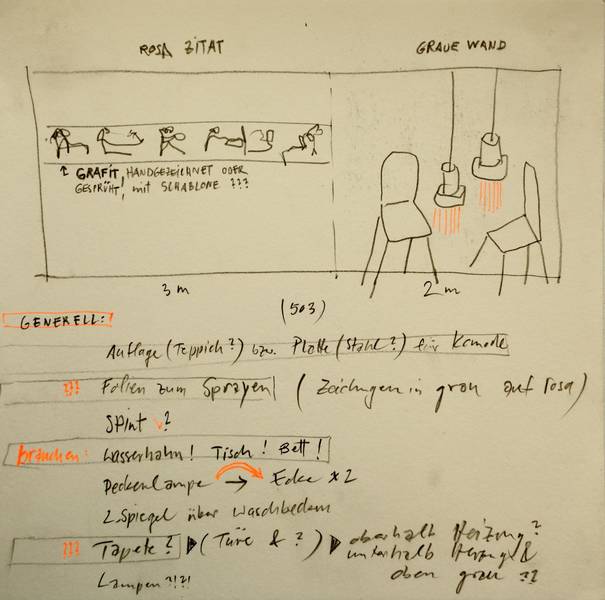 ROSA ZITAT
GRAUE WAND
↑ GRAFIT, HANDGEZEICHNET ODER
GESPRÜHT, mit SCHABLONE ???
3 m
2 m
(503)
GENERELL:
Auflage (Teppich?) bzw. Platte (Stahl?) für Komode
??? Folien zum Sprayen (Zeichungen in grau auf rosa)
SPint ?
brauchen: Wasserhahn! Tisch! Bett!
Deckenlampe → Ecke x2
2 Spiegel über Waschbecken
??? Tapete? ▶ (Türe & ?) ▶ oberhalb Heizung?
unterhalb Heizung &
oben grau ??
Lampen ?!?!